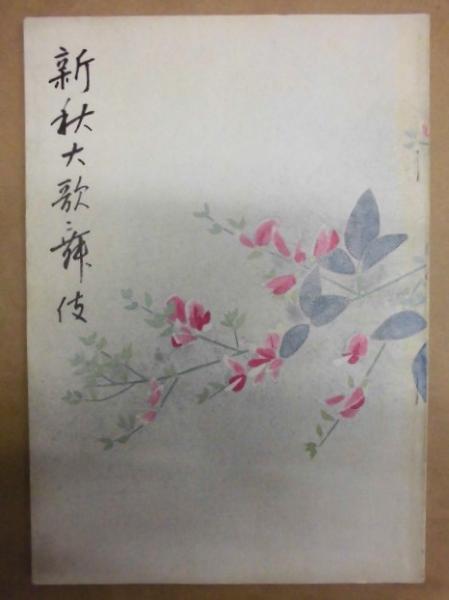 新秋大歌舞伎